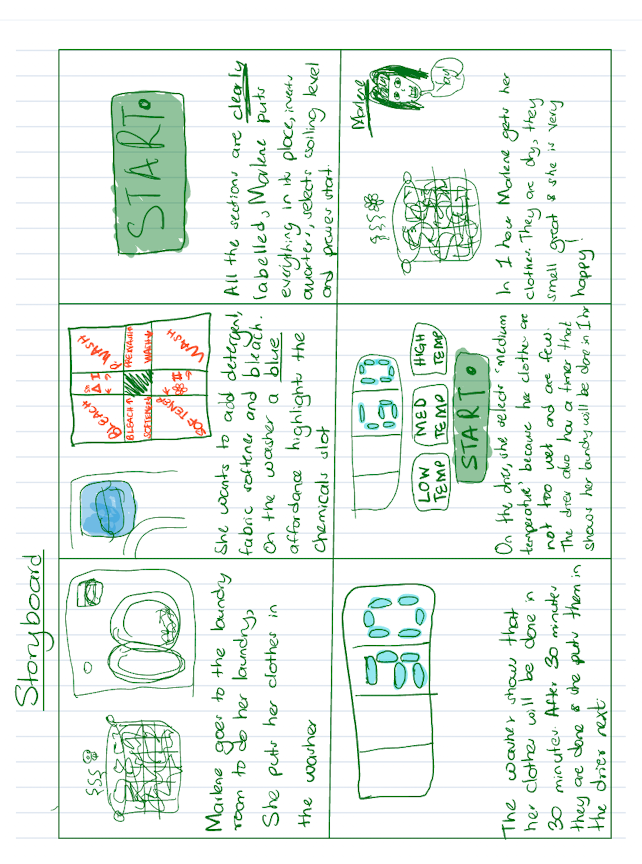 Storyboard
Marlene goes to the laundry
room to do her laundry,
She puts her clothes in
the washer
BLEACH
P. WASH
BLEACH↑
PREWASH↑
SOFTENER↓
WASH↓
SOFTENER
WASH
She wants to add detergent,
fabric softener and bleach.
On the washer a blue
affordance highlights the
chemicals slot
START
All the sections are clearly
labelled, Marlene puts
everything in its place, inserts
quarters, selects soiling level
and presses start.
30
The washer shows that
her clothes will be done in
30 minutes. After 30 minutes
they are done & she puts them in
the drier next.
LOW TEMP
MED TEMP
HIGH TEMP
START
On the drier, she selects "medium
temperature" because her clothes are
not too wet and are few.
The drier also has a timer that
shows her laundry will be done in 1hr
Marlene
Yay!
In 1 hour Marlene gets her
clothes. They are dry, they
smell great & she is very
happy!